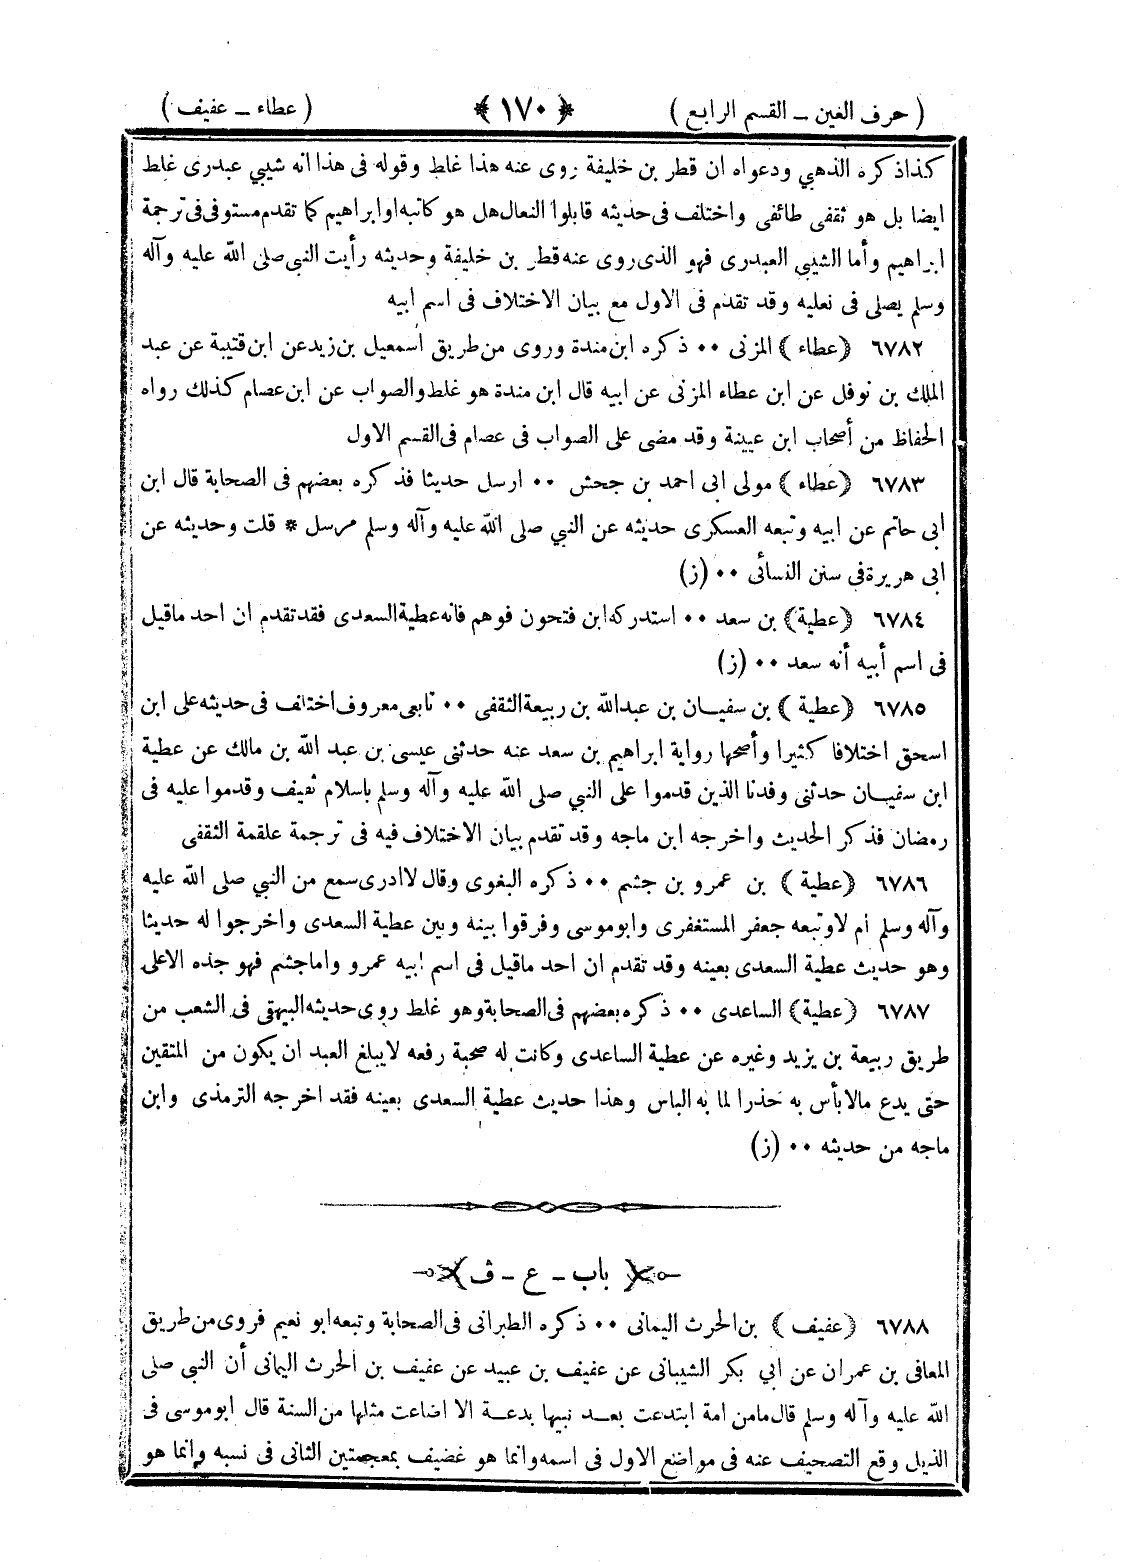 ( حرف الغين ــ القسم الرابع ) ﴿ ١٧٠ ﴾ ( عطاء ــ عفيف )
كذا ذكره الذهبي ودعواه ان قطر بن خليفة روى عنه هذا غلط وقوله فى هذا انه شيبي عبدرى غلط
ايضا بل هو ثقفى طائفى واختلف فى حديثه قابلوا النعال هل هو كاتبه او ابراهيم كما تقدم مستوفى فى ترجمة
ابراهيم وأما الشيبي العبدرى فهو الذى روى عنه قطر بن خليفة وحديثه رأيت النبي صلى الله عليه وآله
وسلم يصلى فى نعليه وقد تقدم فى الاول مع بيان الاختلاف فى اسم ابيه
٦٧٨٢ ﴿ عطاء ﴾ المزنى ٠٠ ذكره ابن مندة وروى من طريق اسمعيل بن زيد عن ابن قتيبة عن عبد
الملك بن نوفل عن ابن عطاء المزنى عن ابيه قال ابن مندة هو غلط والصواب عن ابن عصام كذلك رواه
الحفاظ من أصحاب ابن عيينة وقد مضى على الصواب فى عصام فى القسم الاول
٦٧٨٣ ﴿ عطاء ﴾ مولى ابى احمد بن جحش ٠٠ ارسل حديثا فذكره بعضهم فى الصحابة قال ابن
أبى حاتم عن ابيه وتبعه العسكرى حديثه عن النبي صلى الله عليه وآله وسلم مرسل * قلت وحديثه عن
ابى هريرة فى سنن النسائى ٠٠ (ز)
٦٧٨٤ ﴿ عطية ﴾ بن سعد ٠٠ استدركه ابن فتحون فوهم فانه عطية السعدى فقد تقدم ان احد ماقيل
فى اسم أبيه أنه سعد ٠٠ (ز)
٦٧٨٥ ﴿ عطية ﴾ بن سفيــان بن عبدالله بن ربيعة الثقفى ٠٠ تابعى معروف اختلف فى حديثه على ابن
اسحق اختلافا كثيرا وأصحها رواية ابراهيم بن سعد عنه حدثنى عيسى بن عبد الله بن مالك عن عطية
ابن سفيــان حدثنى وفدنا الذين قدموا على النبي صلى الله عليه وآله وسلم باسلام ثقيف وقدموا عليه فى
رمضان فذكر الحديث واخرجه ابن ماجه وقد تقدم بيان الاختلاف فيه فى ترجمة علقمة الثقفى
٦٧٨٦ ﴿ عطية ﴾ بن عمرو بن جشم ٠٠ ذكره البغوى وقال لاادرى سمع من النبي صلى الله عليه
وآله وسلم ام لا وتبعه جعفر المستغفرى وابوموسى وفرقوا بينه وبين عطية السعدى واخرجوا له حديثا
وهو حديث عطية السعدى بعينه وقد تقدم ان احد ماقيل فى اسم ابيه عمرو واماجشم فهو جده الاعلى
٦٧٨٧ ﴿ عطية ﴾ الساعدى ٠٠ ذكره بعضهم فى الصحابة وهو غلط روى حديثه البيهقى فى الشعب من
طريق ربيعة بن يزيد وغيره عن عطية الساعدى وكانت له صحبة رفعه لا يبلغ العبد ان يكون من المتقين
حتى يدع مالابأس به حذرا لما به الباس وهذا حديث عطية السعدى بعينه فقد اخرجه الترمذى وابن
ماجه من حديثه ٠٠ (ز)
باب ــ ع ــ ف
٦٧٨٨ ﴿ عفيف ﴾ بن الحرث اليمانى ٠٠ ذكره الطبرانى فى الصحابة وتبعه ابو نعيم فروى من طريق
المعافى بن عمران عن أبي بكر الشيبانى عن عفيف بن عبيد عن عفيف بن الحرث اليمانى أن النبي صلى
الله عليه وآله وسلم قال مامن امة ابتدعت بعــد نبيها بدعــة الا اضاعت مثلها من السنة قال ابوموسى فى
الذيل وقع التصحيف عنه فى مواضع الاول فى اسمه وانما هو غضيف بمعجمتين الثانى فى نسبه وانما هو